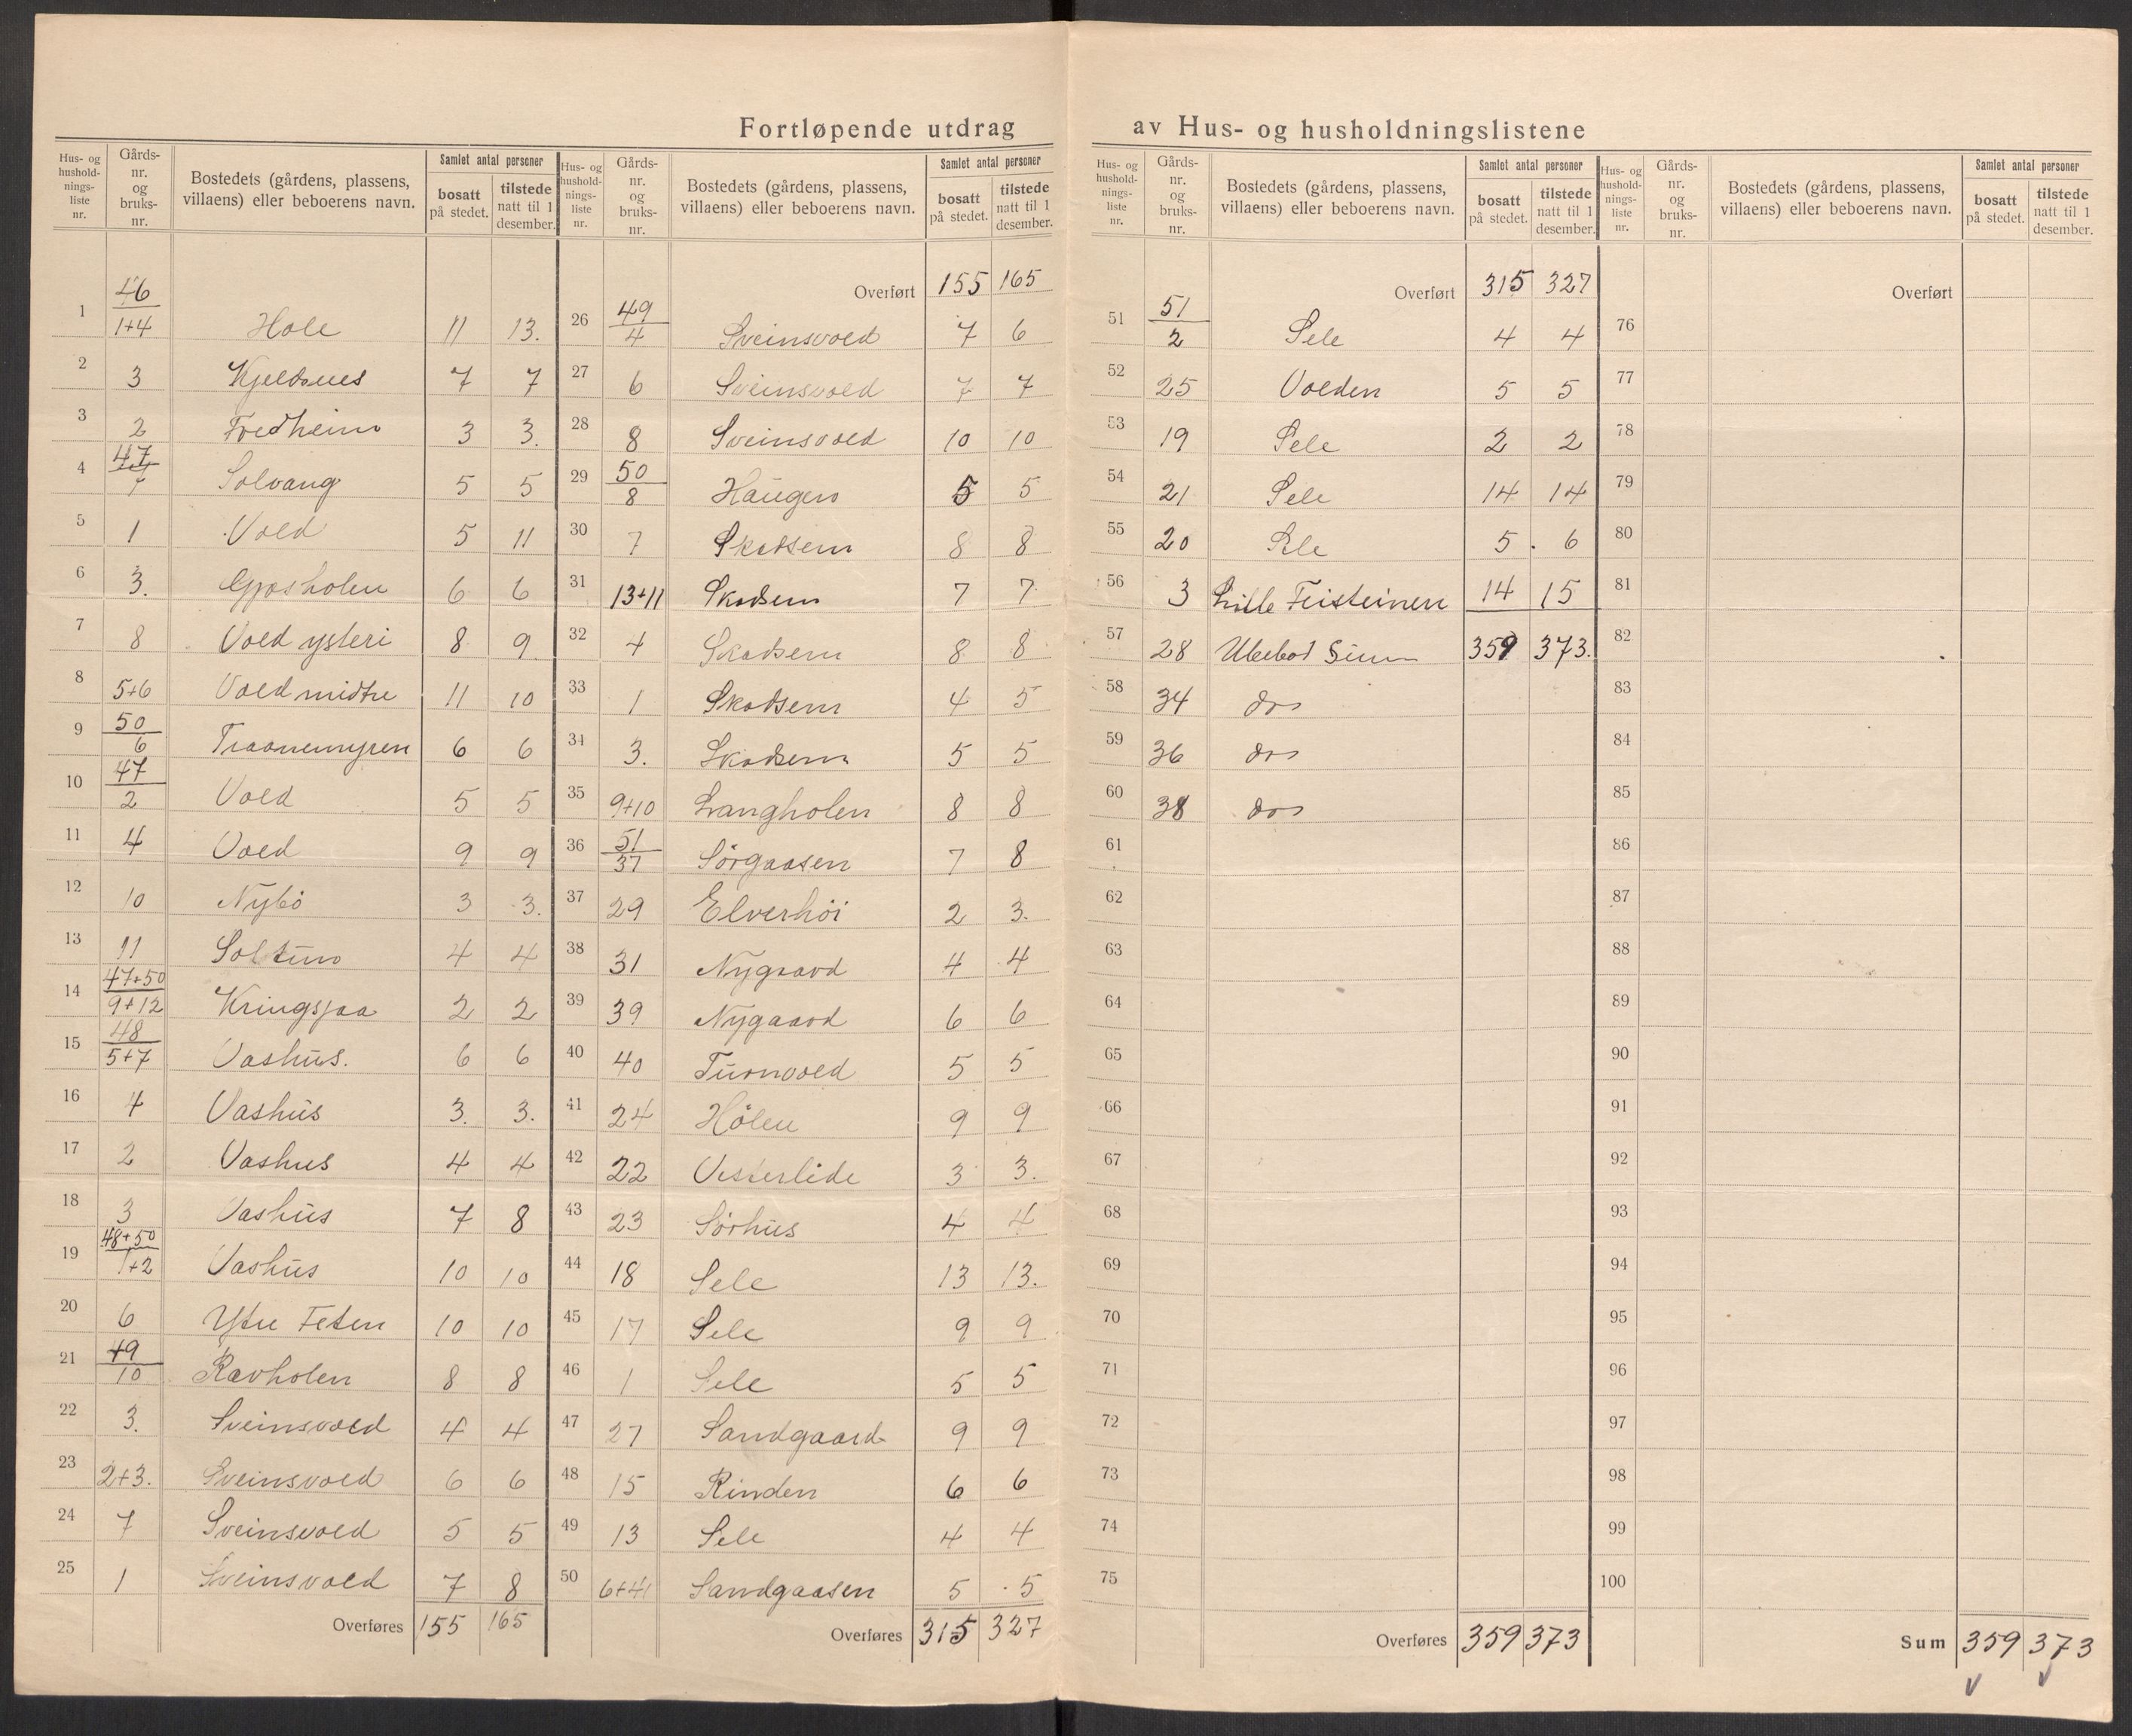 Fortløpende utdrag av Hus- og husholdningslistene
Hus- og husholdningsliste nr. | Gårdsnr. og bruksnr. | Bostedets (gårdens, plassens, villaens) eller beboerens navn. | Samlet antal personer: bosatt på stedet. | tilstede natt til 1 desember.
1 | 46 / 1+4 | Hole | 11 | 13.
2 | 3 | Kjeldsnes | 7 | 7
3 | 2 | Fredheim | 3 | 3.
4 | 47 / 7 | Solvang | 5 | 5
5 | 1 | Vold | 5 | 11
6 | 3. | Gjosholen | 6 | 6
7 | 8 | Vold ysteri | 8 | 9
8 | 5+6 | Vold midtre | 11 | 10
9 | 50 / 6 | Traanemyren | 6 | 6
10 | 47 / 2 | Vold | 5 | 5
11 | 4 | Vold | 9 | 9
12 | 10 | Nybö | 3 | 3.
13 | 11 | Soltun | 4 | 4
14 | 47+50 / 9+12 | Kringsjaa | 2 | 2
15 | 48 / 5+7 | Vashus. | 6 | 6
16 | 4 | Vashus | 3. | 3.
17 | 2 | Vashus | 4 | 4
18 | 3 | Vashus | 7 | 8
19 | 48+50 / 1+2 | Vashus | 10 | 10
20 | 6 | Ytre Feten | 10 | 10
21 | 49 / 10 | Ravholen | 8 | 8
22 | 3. | Sveinsvold | 4 | 4
23 | 2+3. | Sveinsvold | 6 | 6
24 | 7 | Sveinsvold | 5 | 5
25 | 1 | Sveinsvold | 7 | 8
Overføres | 155 | 165
Hus- og husholdningsliste nr. | Gårdsnr. og bruksnr. | Bostedets (gårdens, plassens, villaens) eller beboerens navn. | Samlet antal personer: bosatt på stedet. | tilstede natt til 1 desember.
Overført | 155 | 165
26 | 49 / 4 | Sveinsvold | 7 | 6
27 | 6 | Sveinsvold | 7 | 7
28 | 8 | Sveinsvold | 10 | 10
29 | 50 / 8 | Haugen | 5 | 5
30 | 7 | Skadsem | 8 | 8
31 | 13+11 | Skadsem | 7 | 7
32 | 4 | Skadsem | 8 | 8
33 | 1 | Skadsem | 4 | 5
34 | 3. | Skadsem | 5 | 5
35 | 9+10 | Langholen | 8 | 8
36 | 51 / 37 | Sörgaasen | 7 | 8
37 | 29 | Elverhöi | 2 | 3.
38 | 31 | Nygaard | 4 | 4
39 | 39 | Nygaard | 6 | 6
40 | 40 | Tunvold | 5 | 5
41 | 24 | Hölen | 9 | 9
42 | 22 | Vesterlide | 3 | 3.
43 | 23 | Sörhus | 4 | 4
44 | 18 | Sele | 13 | 13.
45 | 17 | Sele | 9 | 9
46 | 1 | Sele | 5 | 5
47 | 27 | Sandgaard | 9 | 9
48 | 15 | Rinden | 6 | 6
49 | 13 | Sele | 4 | 4
50 | 6+41 | Sandgaasen | 5 | 5
Overføres | 315 | 327
Hus- og husholdningsliste nr. | Gårdsnr. og bruksnr. | Bostedets (gårdens, plassens, villaens) eller beboerens navn. | Samlet antal personer: bosatt på stedet. | tilstede natt til 1 desember.
Overført | 315 | 327
51 | 51 / 2 | Sele | 4 | 4
52 | 25 | Volden | 5 | 5
53 | 19 | Sele | 2 | 2
54 | 21 | Sele | 14 | 14
55 | 20 | Sele | 5 | 6
56 | 3 | Lille Feisteinen | 14 | 15
57 | 28 | Ubebod Sum | 359 | 373.
58 | 34 | do
59 | 36 | do
60 | 38 | do
61
62
63
64
65
66
67
68
69
70
71
72
73
74
75
Overføres | 359 | 373
Hus- og husholdningsliste nr. | Gårdsnr. og bruksnr. | Bostedets (gårdens, plassens, villaens) eller beboerens navn. | Samlet antal personer: bosatt på stedet. | tilstede natt til 1 desember.
Overført
76
77
78
79
80
81
82
83
84
85
86
87
88
89
90
91
92
93
94
95
96
97
98
99
100
Sum | 359 | 373